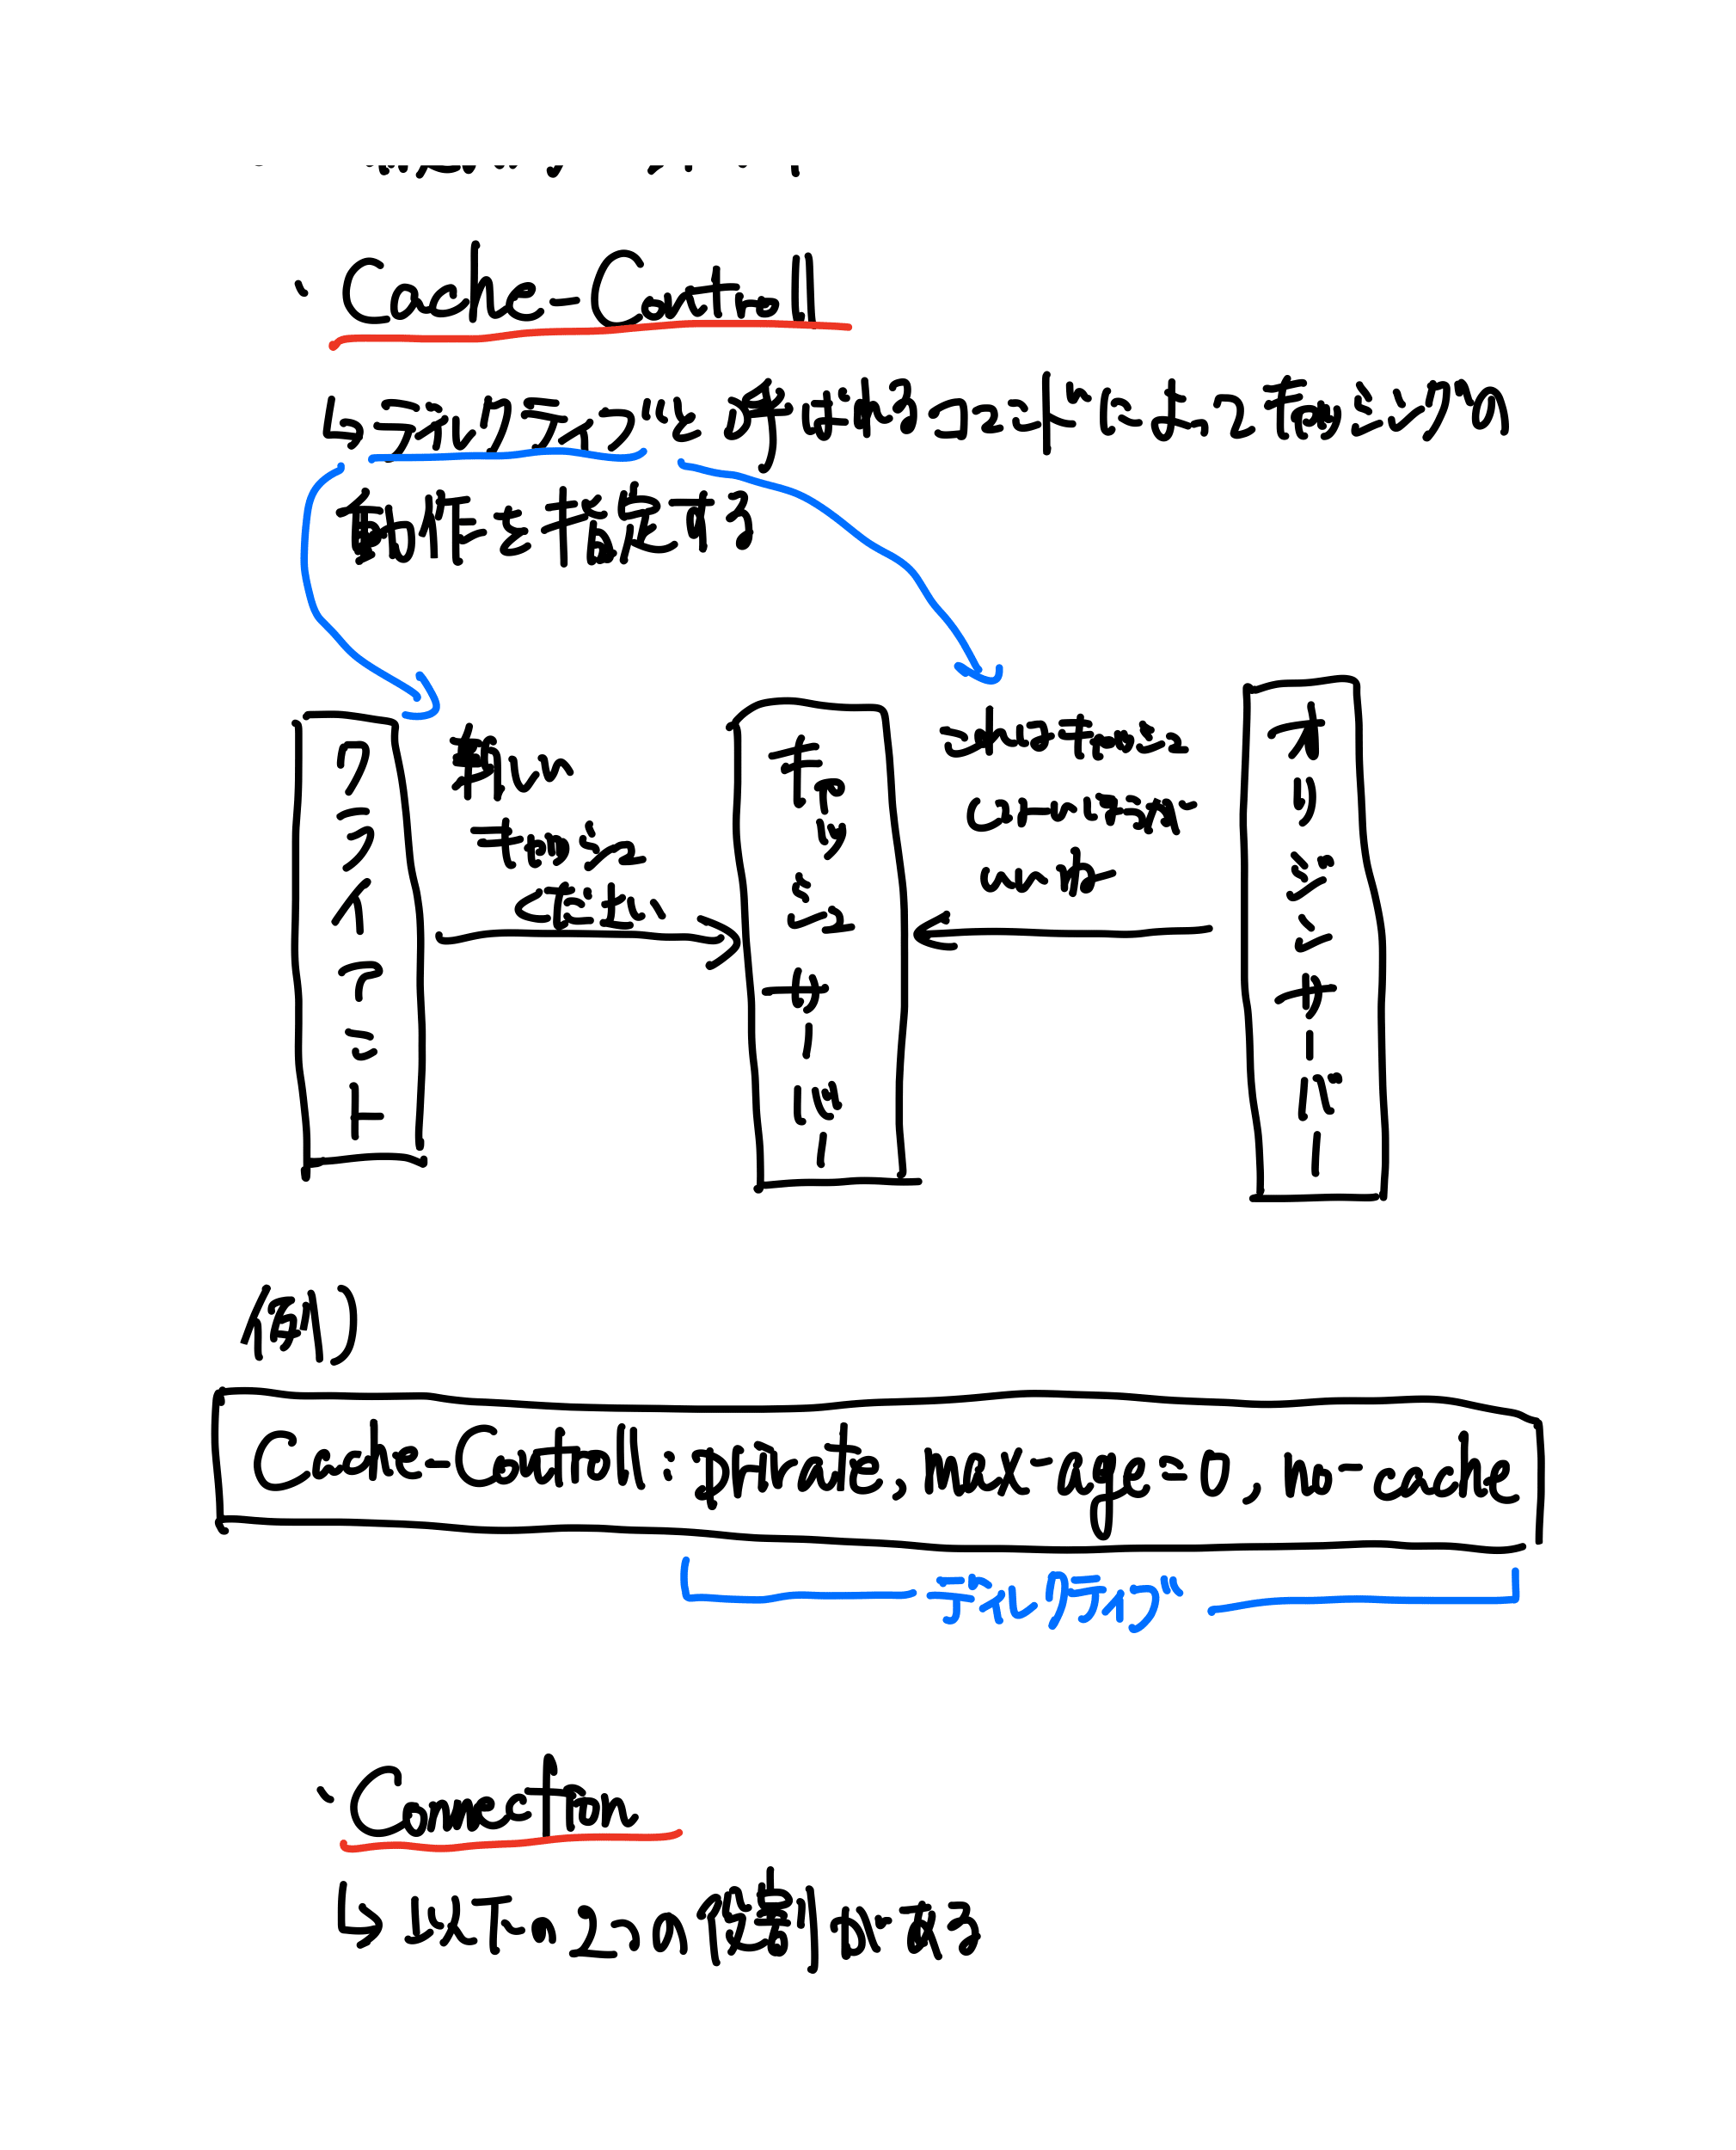 ・Cache-Controll
↳ディレクティブと呼ばれるコマンドによって キャッシングの
動作を指定する
クライアント
新しい
キャッシュ
ください
キャッシュサーバー
これはキャッシュ
しないで下さ
いね
オリジンサーバー
(例)
Cache-Controll: private, max-age=0, no-cache
ディレクティブ
・Connection
↳以下の2つの役割がある